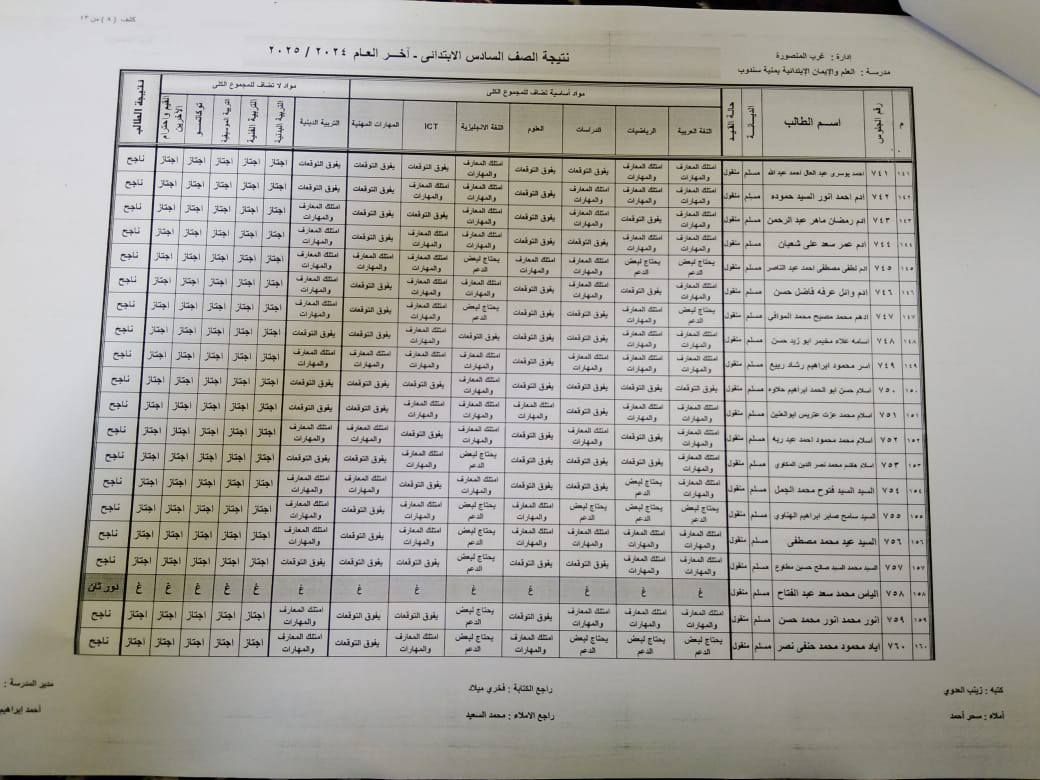 كشف ( ٨ ) من ١٣
إدارة : غرب المنصورة
مدرسة : العلم والإيمان الابتدائية بمنية سندوب
نتيجة الصف السادس الابتدائى - آخـــر العـــام ٢٠٢٤ / ٢٠٢٥
م رقم الجلوس اســـم الطالب الديـــانة حالة القيد مواد أساسية تضاف للمجموع الكلى مواد لا تضاف للمجموع الكلى نتيجة الطالب
اللغة العربية الرياضيات الدراسات العلوم اللغة الانجليزية ICT المهارات المهنية التربية الدينية التربية البدنية التربية الفنية التربية الموسيقية توكاتسو القيم واحترام الآخرين
١٤١ ٧٤١ مسلم منقول امتلك المعارف والمهارات امتلك المعارف والمهارات يفوق التوقعات يفوق التوقعات امتلك المعارف والمهارات يفوق التوقعات يفوق التوقعات يفوق التوقعات اجتاز اجتاز اجتاز اجتاز اجتاز ناجح
١٤٢ ٧٤٢ ادم احمد انور السيد حموده مسلم منقول امتلك المعارف والمهارات امتلك المعارف والمهارات يفوق التوقعات يفوق التوقعات امتلك المعارف والمهارات امتلك المعارف والمهارات يفوق التوقعات يفوق التوقعات اجتاز اجتاز اجتاز اجتاز اجتاز ناجح
١٤٣ ٧٤٣ ادم رمضان ماهر عبد الرحمن مسلم منقول امتلك المعارف والمهارات يفوق التوقعات يفوق التوقعات يفوق التوقعات امتلك المعارف والمهارات يفوق التوقعات يفوق التوقعات امتلك المعارف والمهارات اجتاز اجتاز اجتاز اجتاز اجتاز ناجح
١٤٤ ٧٤٤ ادم عمر سعد على شعبان مسلم منقول امتلك المعارف والمهارات يفوق التوقعات يفوق التوقعات يفوق التوقعات امتلك المعارف والمهارات امتلك المعارف والمهارات يفوق التوقعات امتلك المعارف والمهارات اجتاز اجتاز اجتاز اجتاز اجتاز ناجح
١٤٥ ٧٤٥ ادم لطفى مصطفى احمد عبد الناصر مسلم منقول يحتاج لبعض الدعم يحتاج لبعض الدعم امتلك المعارف والمهارات امتلك المعارف والمهارات يحتاج لبعض الدعم امتلك المعارف والمهارات امتلك المعارف والمهارات امتلك المعارف والمهارات اجتاز اجتاز اجتاز اجتاز اجتاز ناجح
١٤٦ ٧٤٦ ادم وائل عرفه فاضل حسن مسلم منقول امتلك المعارف والمهارات يفوق التوقعات يفوق التوقعات يفوق التوقعات امتلك المعارف والمهارات امتلك المعارف والمهارات يفوق التوقعات امتلك المعارف والمهارات اجتاز اجتاز اجتاز اجتاز اجتاز ناجح
١٤٧ ٧٤٧ ادهم محمد مصبح محمد الموافى مسلم منقول يحتاج لبعض الدعم امتلك المعارف والمهارات يفوق التوقعات يفوق التوقعات يحتاج لبعض الدعم امتلك المعارف والمهارات يفوق التوقعات امتلك المعارف والمهارات اجتاز اجتاز اجتاز اجتاز اجتاز ناجح
١٤٨ ٧٤٨ اسامه علاء مخيمر ابو زيد حسن مسلم منقول امتلك المعارف والمهارات امتلك المعارف والمهارات يفوق التوقعات يفوق التوقعات يفوق التوقعات امتلك المعارف والمهارات يفوق التوقعات يفوق التوقعات اجتاز اجتاز اجتاز اجتاز اجتاز ناجح
١٤٩ ٧٤٩ اسر محمود ابراهيم رشاد ربيع مسلم منقول امتلك المعارف والمهارات امتلك المعارف والمهارات يفوق التوقعات امتلك المعارف والمهارات امتلك المعارف والمهارات امتلك المعارف والمهارات امتلك المعارف والمهارات امتلك المعارف والمهارات اجتاز اجتاز اجتاز اجتاز اجتاز ناجح
١٥٠ ٧٥٠ اسلام حسن ابو الحمد ابراهيم حلاوه مسلم منقول يفوق التوقعات يفوق التوقعات يفوق التوقعات يفوق التوقعات امتلك المعارف والمهارات يفوق التوقعات يفوق التوقعات يفوق التوقعات اجتاز اجتاز اجتاز اجتاز اجتاز ناجح
١٥١ ٧٥١ اسلام محمد عزت عتريس ابوالعنين مسلم منقول امتلك المعارف والمهارات امتلك المعارف والمهارات يفوق التوقعات امتلك المعارف والمهارات امتلك المعارف والمهارات امتلك المعارف والمهارات امتلك المعارف والمهارات يفوق التوقعات اجتاز اجتاز اجتاز اجتاز اجتاز ناجح
١٥٢ ٧٥٢ اسلام محمد محمود احمد عبد ربه مسلم منقول امتلك المعارف والمهارات يفوق التوقعات يفوق التوقعات يفوق التوقعات امتلك المعارف والمهارات يفوق التوقعات امتلك المعارف والمهارات امتلك المعارف والمهارات اجتاز اجتاز اجتاز اجتاز اجتاز ناجح
١٥٣ ٧٥٣ اسلام هاشم محمد نصر الدين المكاوى مسلم منقول امتلك المعارف والمهارات يفوق التوقعات يفوق التوقعات يفوق التوقعات يحتاج لبعض الدعم يفوق التوقعات يفوق التوقعات يفوق التوقعات اجتاز اجتاز اجتاز اجتاز اجتاز ناجح
١٥٤ ٧٥٤ السيد السيد فتوح محمد الجمل مسلم منقول امتلك المعارف والمهارات يحتاج لبعض الدعم يفوق التوقعات يفوق التوقعات امتلك المعارف والمهارات امتلك المعارف والمهارات امتلك المعارف والمهارات امتلك المعارف والمهارات اجتاز اجتاز اجتاز اجتاز اجتاز ناجح
١٥٥ ٧٥٥ السيد سامح صابر ابراهيم الهناوى مسلم منقول يحتاج لبعض الدعم يحتاج لبعض الدعم يحتاج لبعض الدعم امتلك المعارف والمهارات يحتاج لبعض الدعم امتلك المعارف والمهارات يفوق التوقعات امتلك المعارف والمهارات اجتاز اجتاز اجتاز اجتاز اجتاز ناجح
١٥٦ ٧٥٦ السيد عيد محمد مصطفى مسلم منقول امتلك المعارف والمهارات امتلك المعارف والمهارات يفوق التوقعات امتلك المعارف والمهارات يحتاج لبعض الدعم امتلك المعارف والمهارات يفوق التوقعات امتلك المعارف والمهارات اجتاز اجتاز اجتاز اجتاز اجتاز ناجح
١٥٧ ٧٥٧ السيد محمد السيد صالح حسين مطاوع مسلم منقول امتلك المعارف والمهارات امتلك المعارف والمهارات يفوق التوقعات يفوق التوقعات يحتاج لبعض الدعم يفوق التوقعات يفوق التوقعات يفوق التوقعات اجتاز اجتاز اجتاز اجتاز اجتاز ناجح
١٥٨ ٧٥٨ الياس محمد سعد عبد الفتاح مسلم منقول غ غ غ غ غ غ غ غ غ غ غ غ غ دور ثان
١٥٩ ٧٥٩ انور محمد انور محمد حسن مسلم منقول امتلك المعارف والمهارات امتلك المعارف والمهارات يفوق التوقعات امتلك المعارف والمهارات يحتاج لبعض الدعم يفوق التوقعات يفوق التوقعات امتلك المعارف والمهارات اجتاز اجتاز اجتاز اجتاز اجتاز ناجح
١٦٠ ٧٦٠ اياد محمود محمد حنفى نصر مسلم منقول يحتاج لبعض الدعم يحتاج لبعض الدعم يحتاج لبعض الدعم امتلك المعارف والمهارات يحتاج لبعض الدعم امتلك المعارف والمهارات يفوق التوقعات امتلك المعارف والمهارات اجتاز اجتاز اجتاز اجتاز اجتاز ناجح
كتبه : زينب العدوي راجع الكتابة : فخري ميلاد مدير المدرسة :
أملاه : سحر أحمد راجع الاملاء : محمد السعيد أحمد إبراهيم